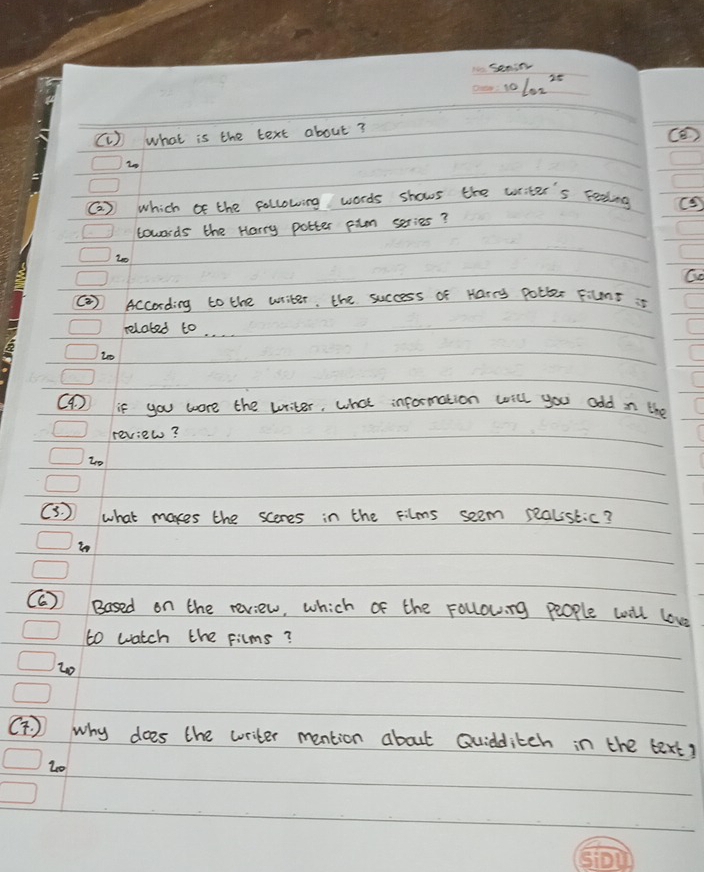 No: Senin
Date: 10/02 25
(1) What is the text about?
20
(2) Which of the following words shows the writer's Feeling
towards the Harry potter film series?
20
(3) According to the writer, the success of Harry Potter Films is
related to....
20
(4.) if you ware the writer, what information will you add in the
review?
20
(5.) What makes the scenes in the Films seem realistic?
20
(6) Based on the review, which of the Following people will love
to watch the Films?
20
(7.) Why does the writer mention about Quidditch in the text?
20
SiDU
(8.)
(9)
(10